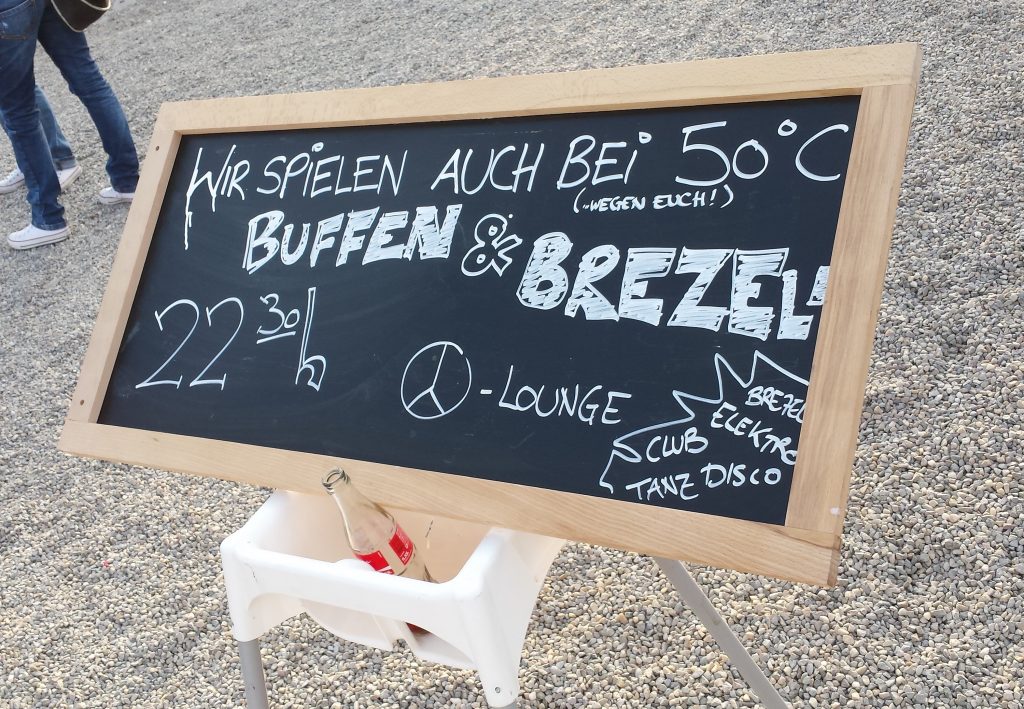 WIR SPIELEN AUCH BEI 50°C
(..WEGEN EUCH!)
BUFFEN & BREZEL
22 30 h
-LOUNGE
BREZEL
ELEKTRO
CLUB
TANZ DISCO